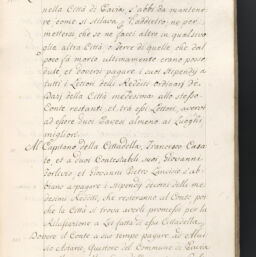 nella Città di Pavia, s'abbi da mantene-
re, come si stilava per l'addietro; ne per-
mettersi che se ne facci altro in qualsivo
glia altra Città o Terre di quelle che dal
poco fà morto ultimamente erano posse-
dute, et dovervi pagare i suoi stipendj a
tutti i Lettori delli Redditi ordinarj de
Dazj della Città medesima: allo stesso
Conte restanti, et tra essi Lettori, avervi
ad essere duoi Pavesi almeno ai Luoghi
migliori.
Al Capitano della Cittadella, Francesco Casa
to, et a duoi Contestabili suoi Giovanni
Forlivio, et Giovanni Pietro s'ab-
biano a pagare i stipendj decorsi delle me-
desimi Redditi, che resteranno al Conte poi
che la Città si trova averli promessi per la
Relassazione a Lei fatta di essa Cittadella,
Dovere il Conte a suo tempo pagare ad Alui
sio Questore del Comune di Pavia